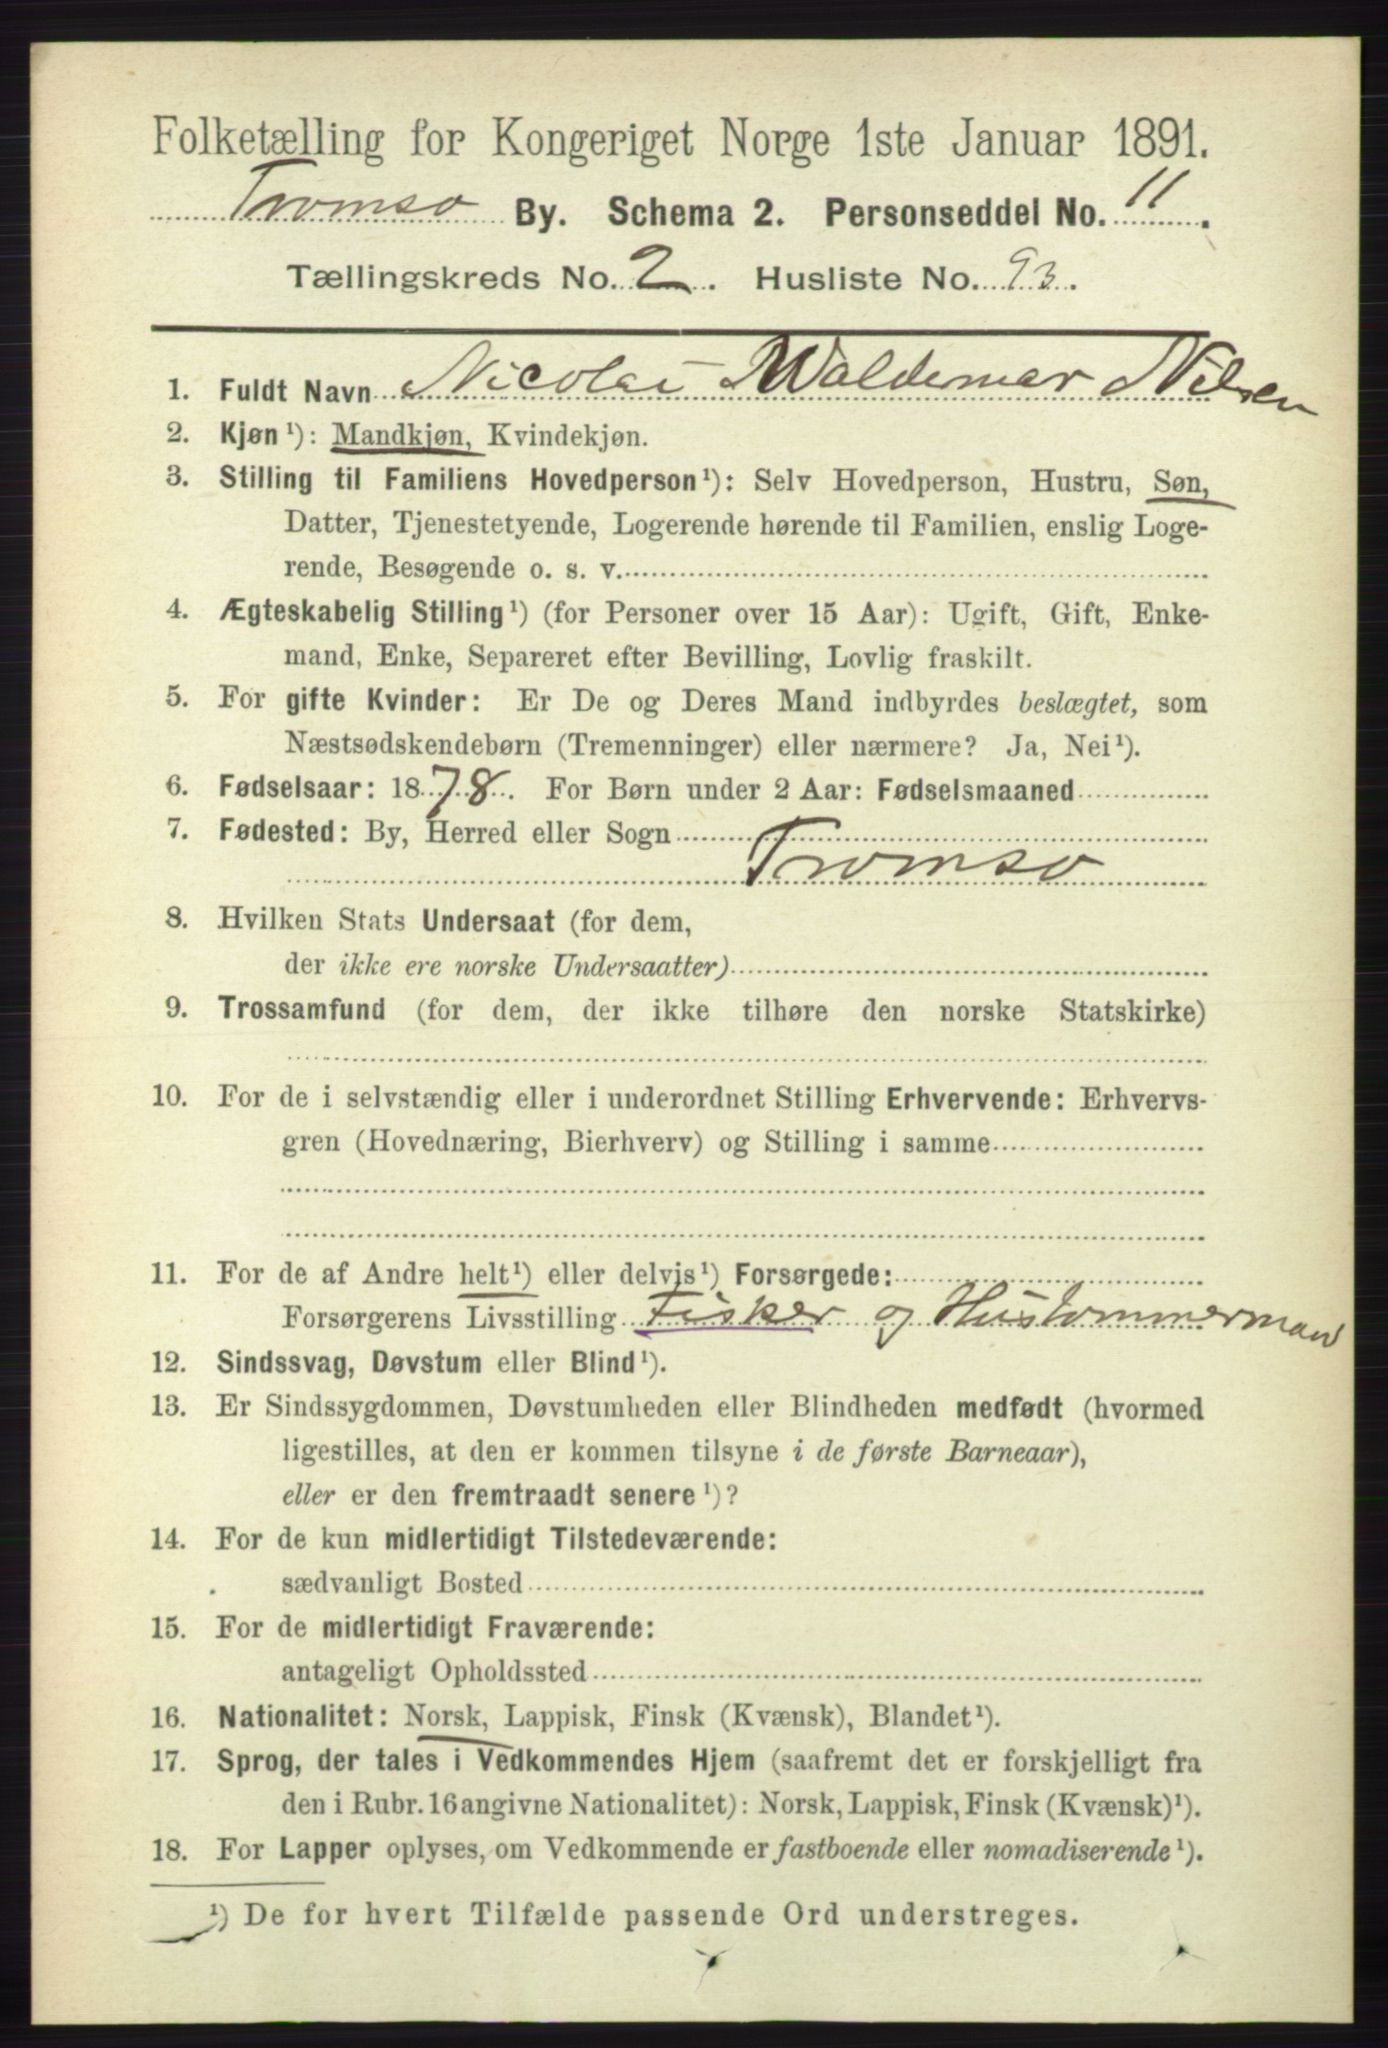 Folketælling for Kongeriget Norge 1ste Januar 1891.
Tromsø By. Schema 2. Personseddel No. 11.
Tællingskreds No. 2. Husliste No. 93.
1. Fuldt Navn Nicolai Waldemar Nilsen
2. Kjøn¹): Mandkjøn, Kvindekjøn.
3. Stilling til Familiens Hovedperson¹): Selv Hovedperson, Hustru, Søn,
Datter, Tjenestetyende, Logerende hørende til Familien, enslig Loge-
rende, Besøgende o. s. v.
4. Ægteskabelig Stilling¹) (for Personer over 15 Aar): Ugift, Gift, Enke-
mand, Enke, Separeret efter Bevilling, Lovlig fraskilt.
5. For gifte Kvinder: Er De og Deres Mand indbyrdes beslægtet, som
Næstsødskendebørn (Tremenninger) eller nærmere? Ja, Nei¹).
6. Fødselsaar: 1878. For Børn under 2 Aar: Fødselsmaaned
7. Fødested: By, Herred eller Sogn
Tromsø
8. Hvilken Stats Undersaat (for dem,
der ikke ere norske Undersaatter)
9. Trossamfund (for dem, der ikke tilhøre den norske Statskirke)
10. For de i selvstændig eller i underordnet Stilling Erhvervende: Erhvervs-
gren (Hovednæring, Bierhverv) og Stilling i samme
11. For de af Andre helt¹) eller delvis¹) Forsørgede:
Forsørgerens Livsstilling Fisker og Hustømmerman
12. Sindssvag, Døvstum eller Blind¹).
13. Er Sindssygdommen, Døvstumheden eller Blindheden medfødt (hvormed
ligestilles, at den er kommen tilsyne i de første Barneaar),
eller er den fremtraadt senere¹)?
14. For de kun midlertidigt Tilstedeværende:
sædvanligt Bosted
15. For de midlertidigt Fraværende:
antageligt Opholdssted
16. Nationalitet: Norsk, Lappisk, Finsk (Kvænsk), Blandet¹).
17. Sprog, der tales i Vedkommendes Hjem (saafremt det er forskjelligt fra
den i Rubr. 16 angivne Nationalitet): Norsk, Lappisk, Finsk (Kvænsk)¹).
18. For Lapper oplyses, om Vedkommende er fastboende eller nomadiserende¹).
¹) De for hvert Tilfælde passende Ord understreges.